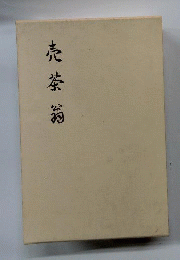 売茶翁